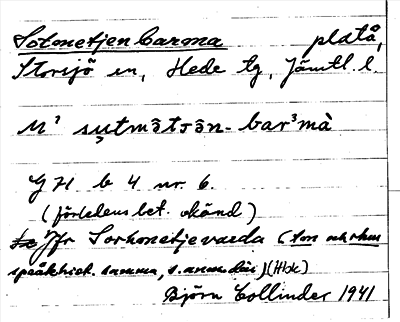 Sotmetjenbarma platå,
Storsjö sn, Hede tg, Jämtl. l.
M¹ su̩tmåtᴊən-bar³mà
G 71 b 4 nr. 6.
(förledens bet. okänd)
Jfr Sorhmetjevaeda (
språkhist. samma, s. anm. där) (Hbk)
Björn Collinder 1941